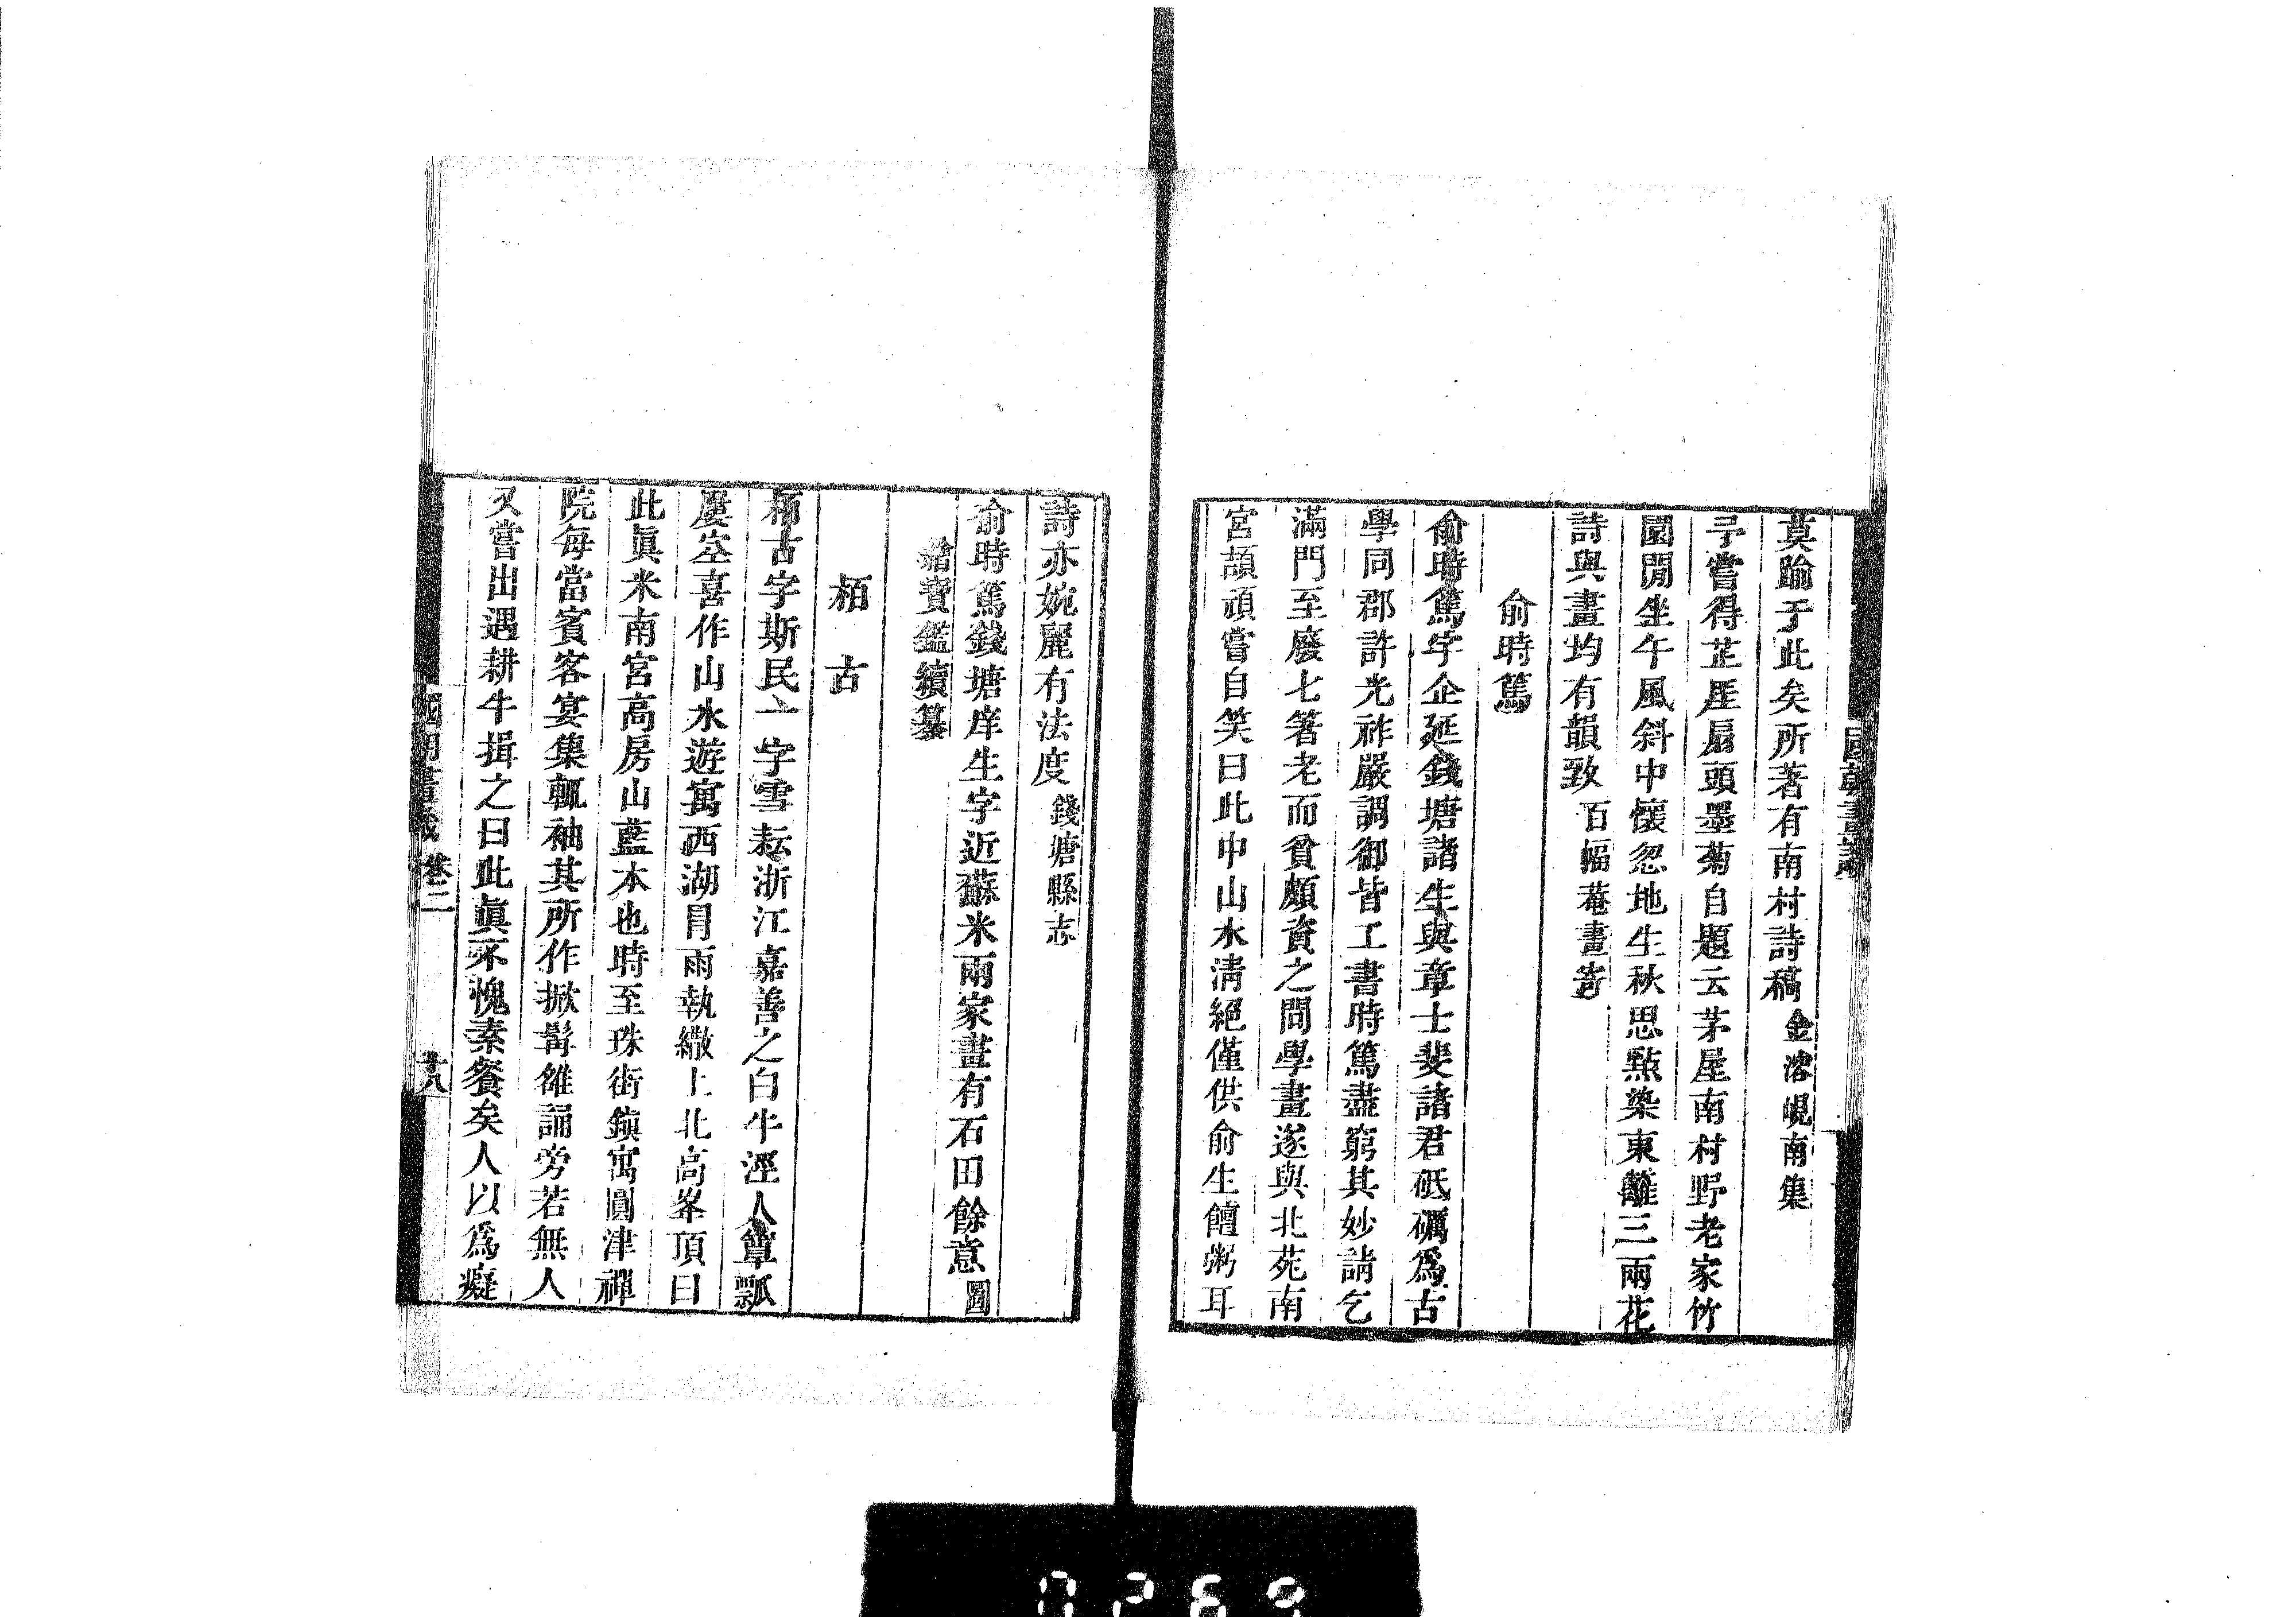 國朝畫識
莫踰于此矣所著有南村詩稿 金溶峴南集
予嘗得芷厓扇頭墨菊自題云茅屋南村野老家竹
園閒坐午風斜中懷忽地生秋思點染東籬三兩花
詩與畫均有韻致 百幅菴畫寄
俞時篤
俞時篤字企延錢塘諸生與章士斐諸君砥礪爲古
學同郡許光祚嚴調御皆工書時篤盡窮其妙請乞
滿門至廢匕箸老而貧頗資之問學畫遂與北苑南
宮頡頏嘗自笑曰此中山水淸絕僅供俞生饘粥耳
詩亦婉麗有法度 錢塘縣志
俞時篤錢塘庠生字近蘇米兩家畫有石田餘意 圖
繪寶鑑續纂
栢古
栢古字斯民一字雪耘浙江嘉善之白牛涇人簞瓢
屢空喜作山水遊寓西湖冒雨執繖上北高峯頂曰
此眞米南宮高房山藍本也時至珠街鎭寓圓津禪
院每當賓客宴集輒袖其所作掀髯雒誦旁若無人
又嘗出遇耕牛揖之曰此眞不愧素餐矣人以爲癡
國朝畫識 卷二 十八
0263